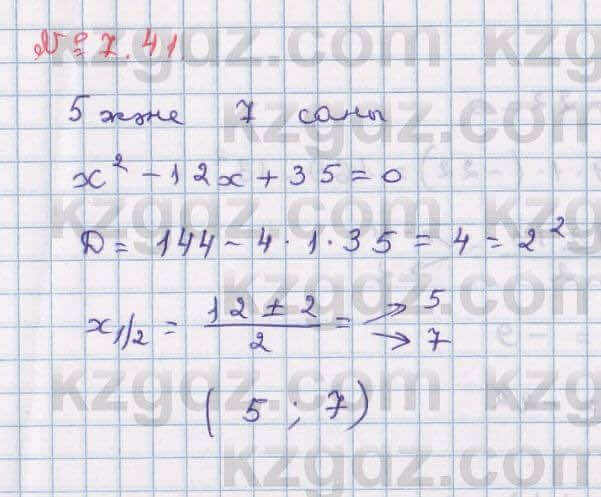 № 7.41.
5 және 7 саны
x² - 12x + 35 = 0
D = 144 - 4 · 1 · 35 = 4 = 2²
x₁/₂ = (12 ± 2)/2 = → 5 → 7
( 5 ; 7 )
kzgdz.com